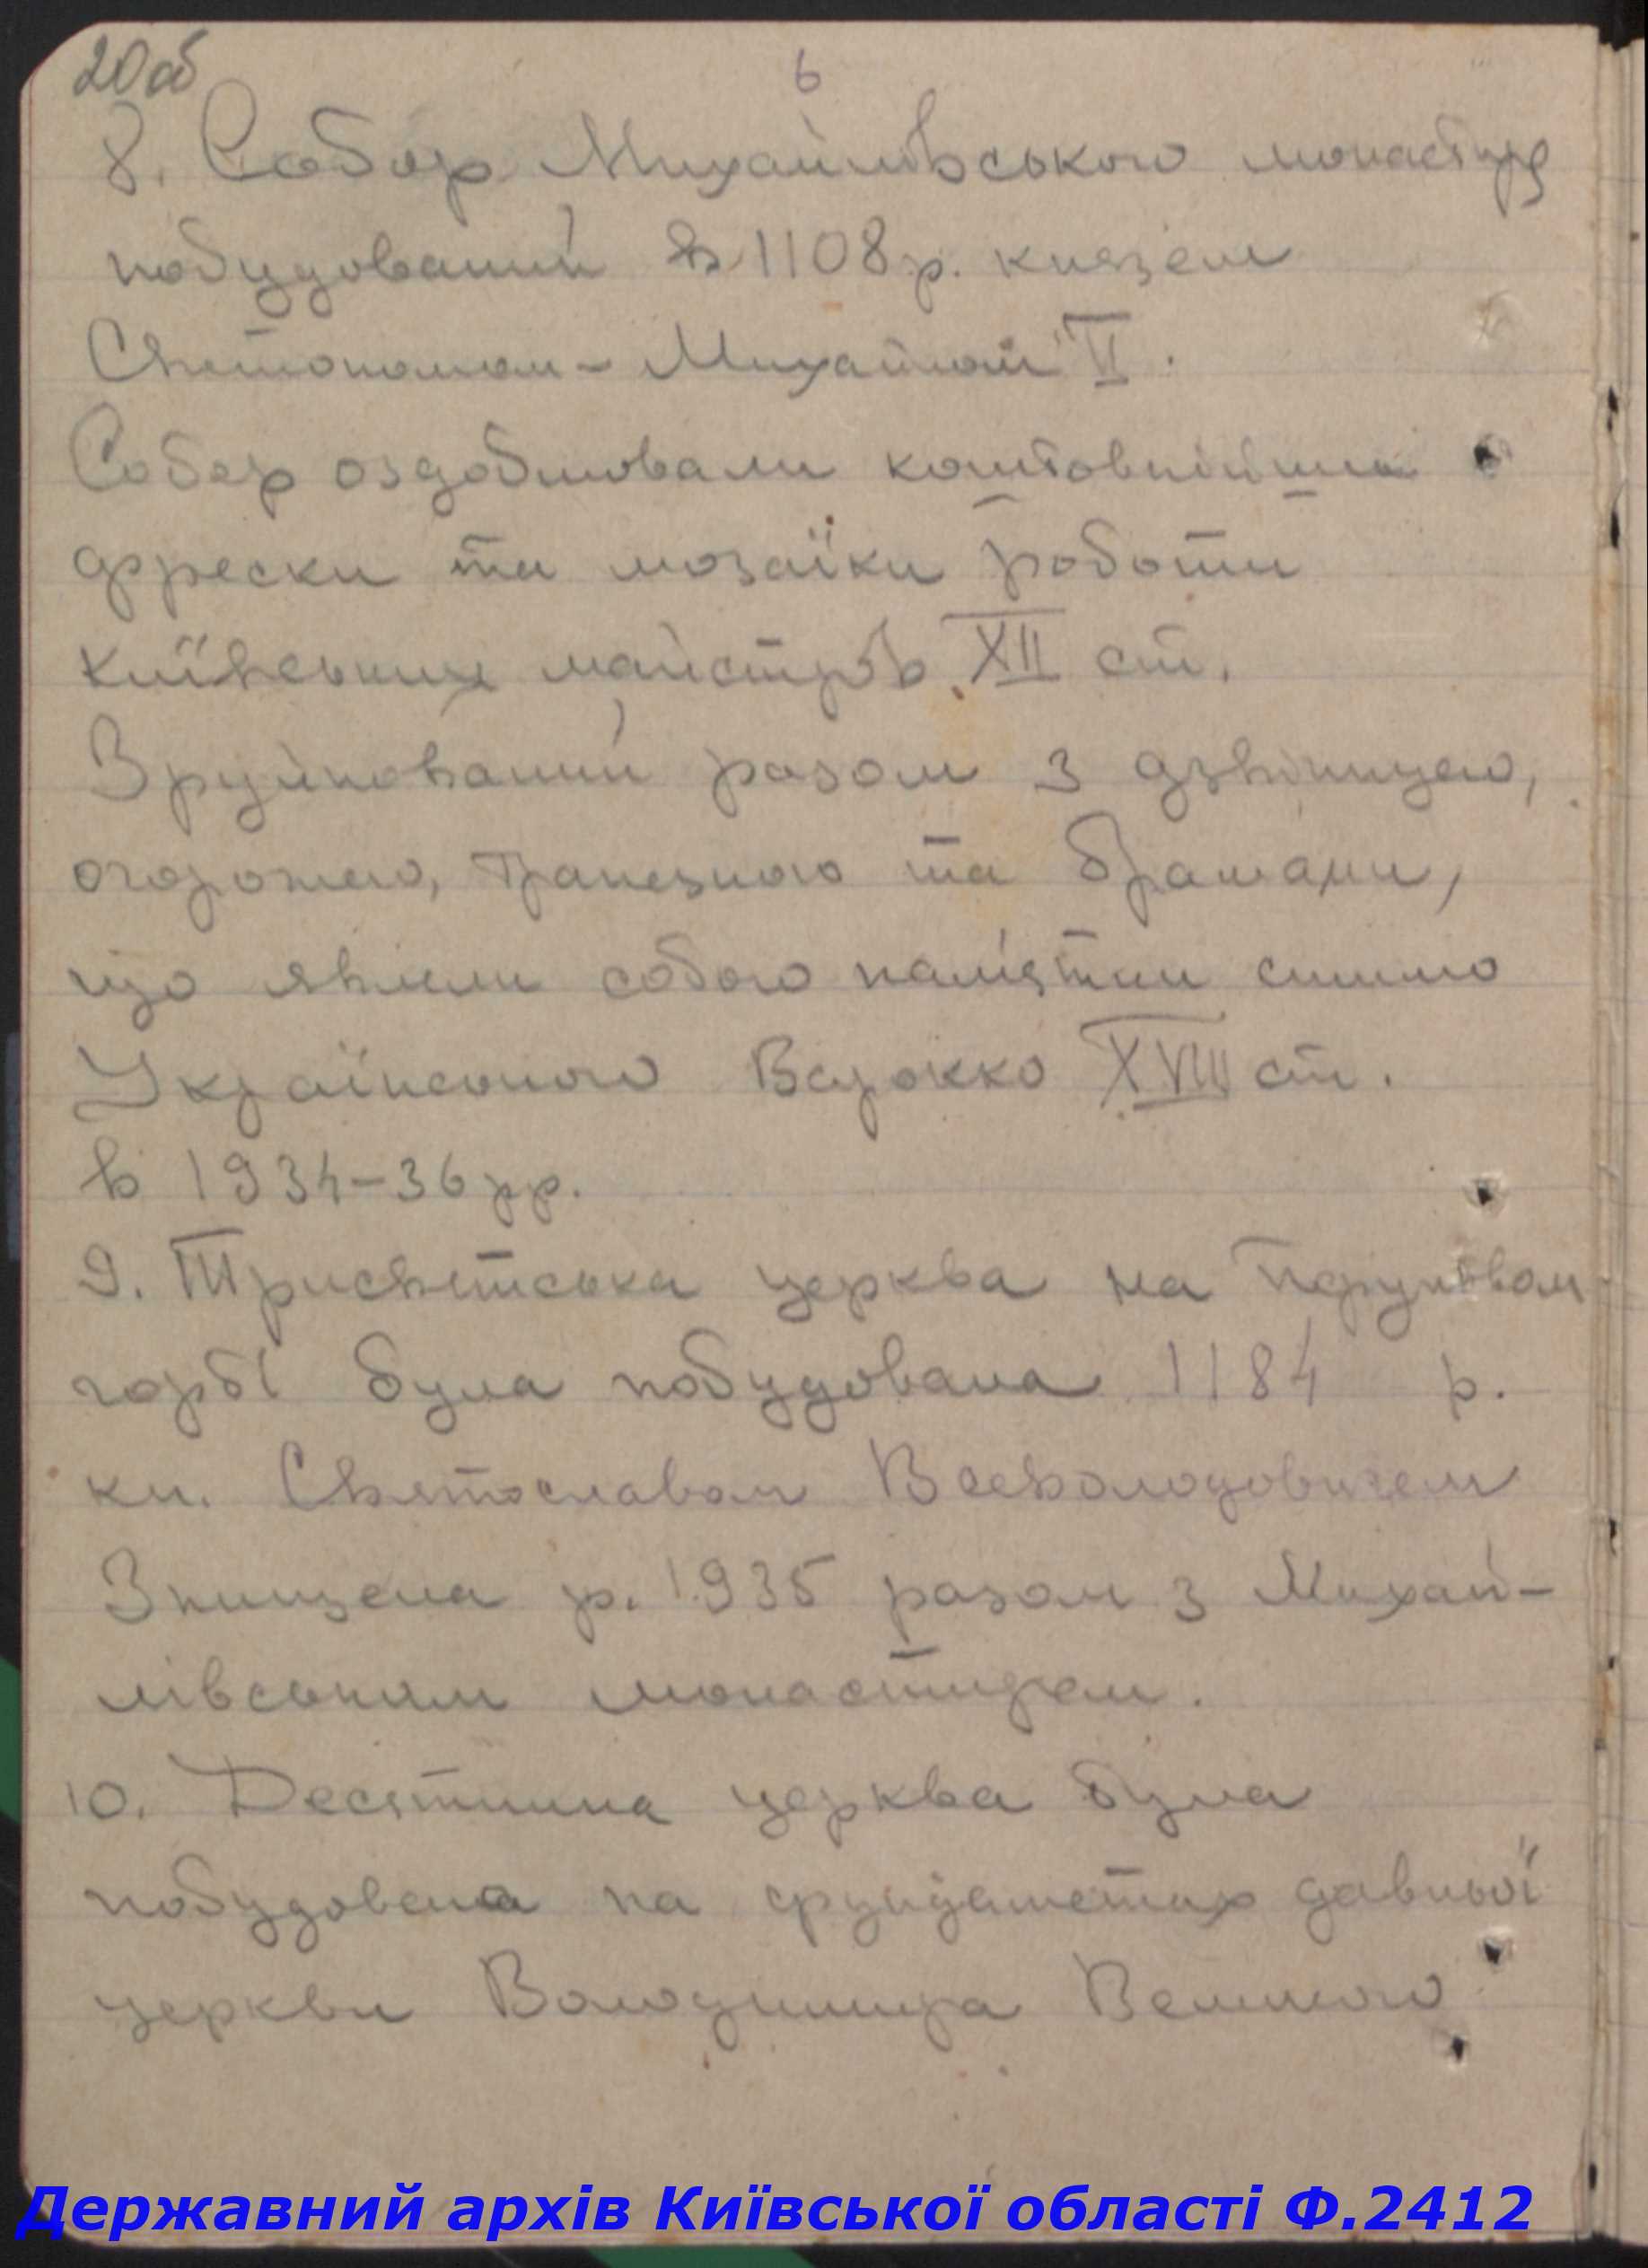 20об
6
8. Собор Михайлівського монастиря
побудований в 1108 р. князем
Святополком-Михайлом II.
Собор оздоблювали коштовнійши
фрески та мозаїки роботи
київських майстрів XII ст.
Зруйнований разом з дзвіницею,
огорожею, трапезною та брамами,
що являли собою пам'ятки стилю
Українського Барокко XVIII ст.
в 1934-36 рр.
9. Трисвятська церква на Перуновом
горбі була побудована 1184 р.
кн. Святославом Всеволодовичем
Знищена р. 1935 разом з Михай-
лівським монастирем.
10. Десятинна церква була
побудована на фундаметах давньої
церкви Володимира Великого
Державний архів Київської області Ф.2412